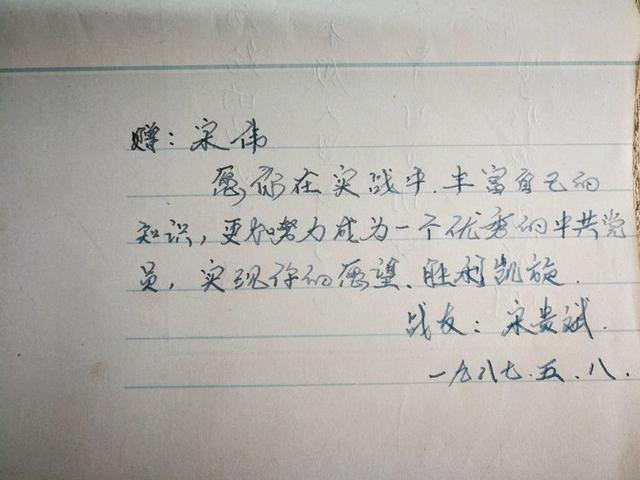 赠：宋伟
愿你在实战中.丰富自己的
知识，更加努力成为一个优秀的中共党
员，实现你的愿望、胜利凯旋.
战友：宋贵斌.
一九八七.五.八.